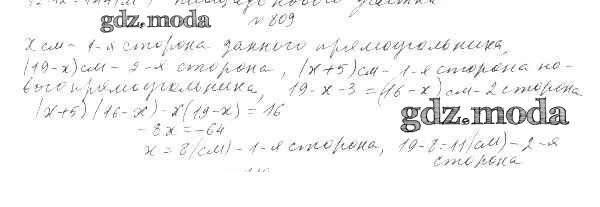 gdz.moda
№ 809
x см - 1-я сторона данного прямоугольника,
(19-x) см - 2-я сторона, (x+5) см - 1-я сторона но-
вого прямоугольника, 19-x-3=(16-x) см - 2 сторона
(x+5)(16-x)-x(19-x)=16
gdz.moda
-8x=-64
x=8 (см) - 1-я сторона, 19-8=11 (см) - 2-я
сторона